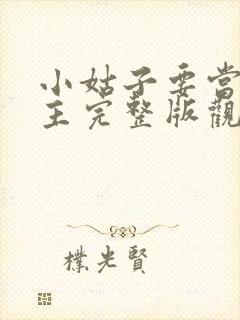 小姑子要當
主完整版觀
樸光賢